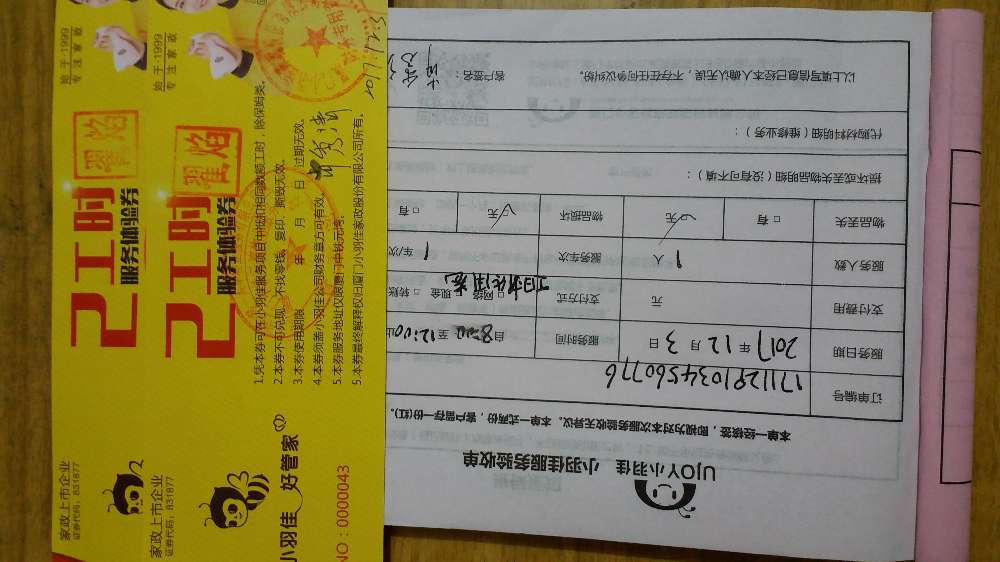 UJOY小羽佳 小羽佳服务验收单
本单一经核签，即视为对本次服务验收无异议。本单一式两份，客户留存一份(红)。
订单编号 1711291034560776
服务日期 2017年12月3日 服务时间 自8:00至12:00止
支付费用 元 支付方式 □网络 □现金 □转账
服务人数 1人 服务车次 1车/次
物品丢失 □有 □无 物品损坏 □有 □无
损坏或丢失物品明细（没有可不填）：
代购材料明细（维修业务）：
以上填写信息已经本人确认无误，不存在任何争议纠纷。
客户签名：
2017.12.3
始于:1999
专注家政
2工时
服务体验券
家政上市企业
证券代码：831877
始于:1999
专注家政
2工时
服务体验券
家政上市企业
证券代码：831877
1.凭本券可在小羽佳服务项目中抵扣相同数额工时，除保姆类。
2.本券不可兑现、不找零钱。复印、撕毁无效。
3.本券使用期限 年 月 日 过期无效。
4.本券须盖小羽佳公司财务章方可有效。
5.本券服务地址仅限厦门中铁元湾。
5.本券最终解释权归厦门小羽佳家政股份有限公司所有。
小羽佳 好管家
NO：0000043